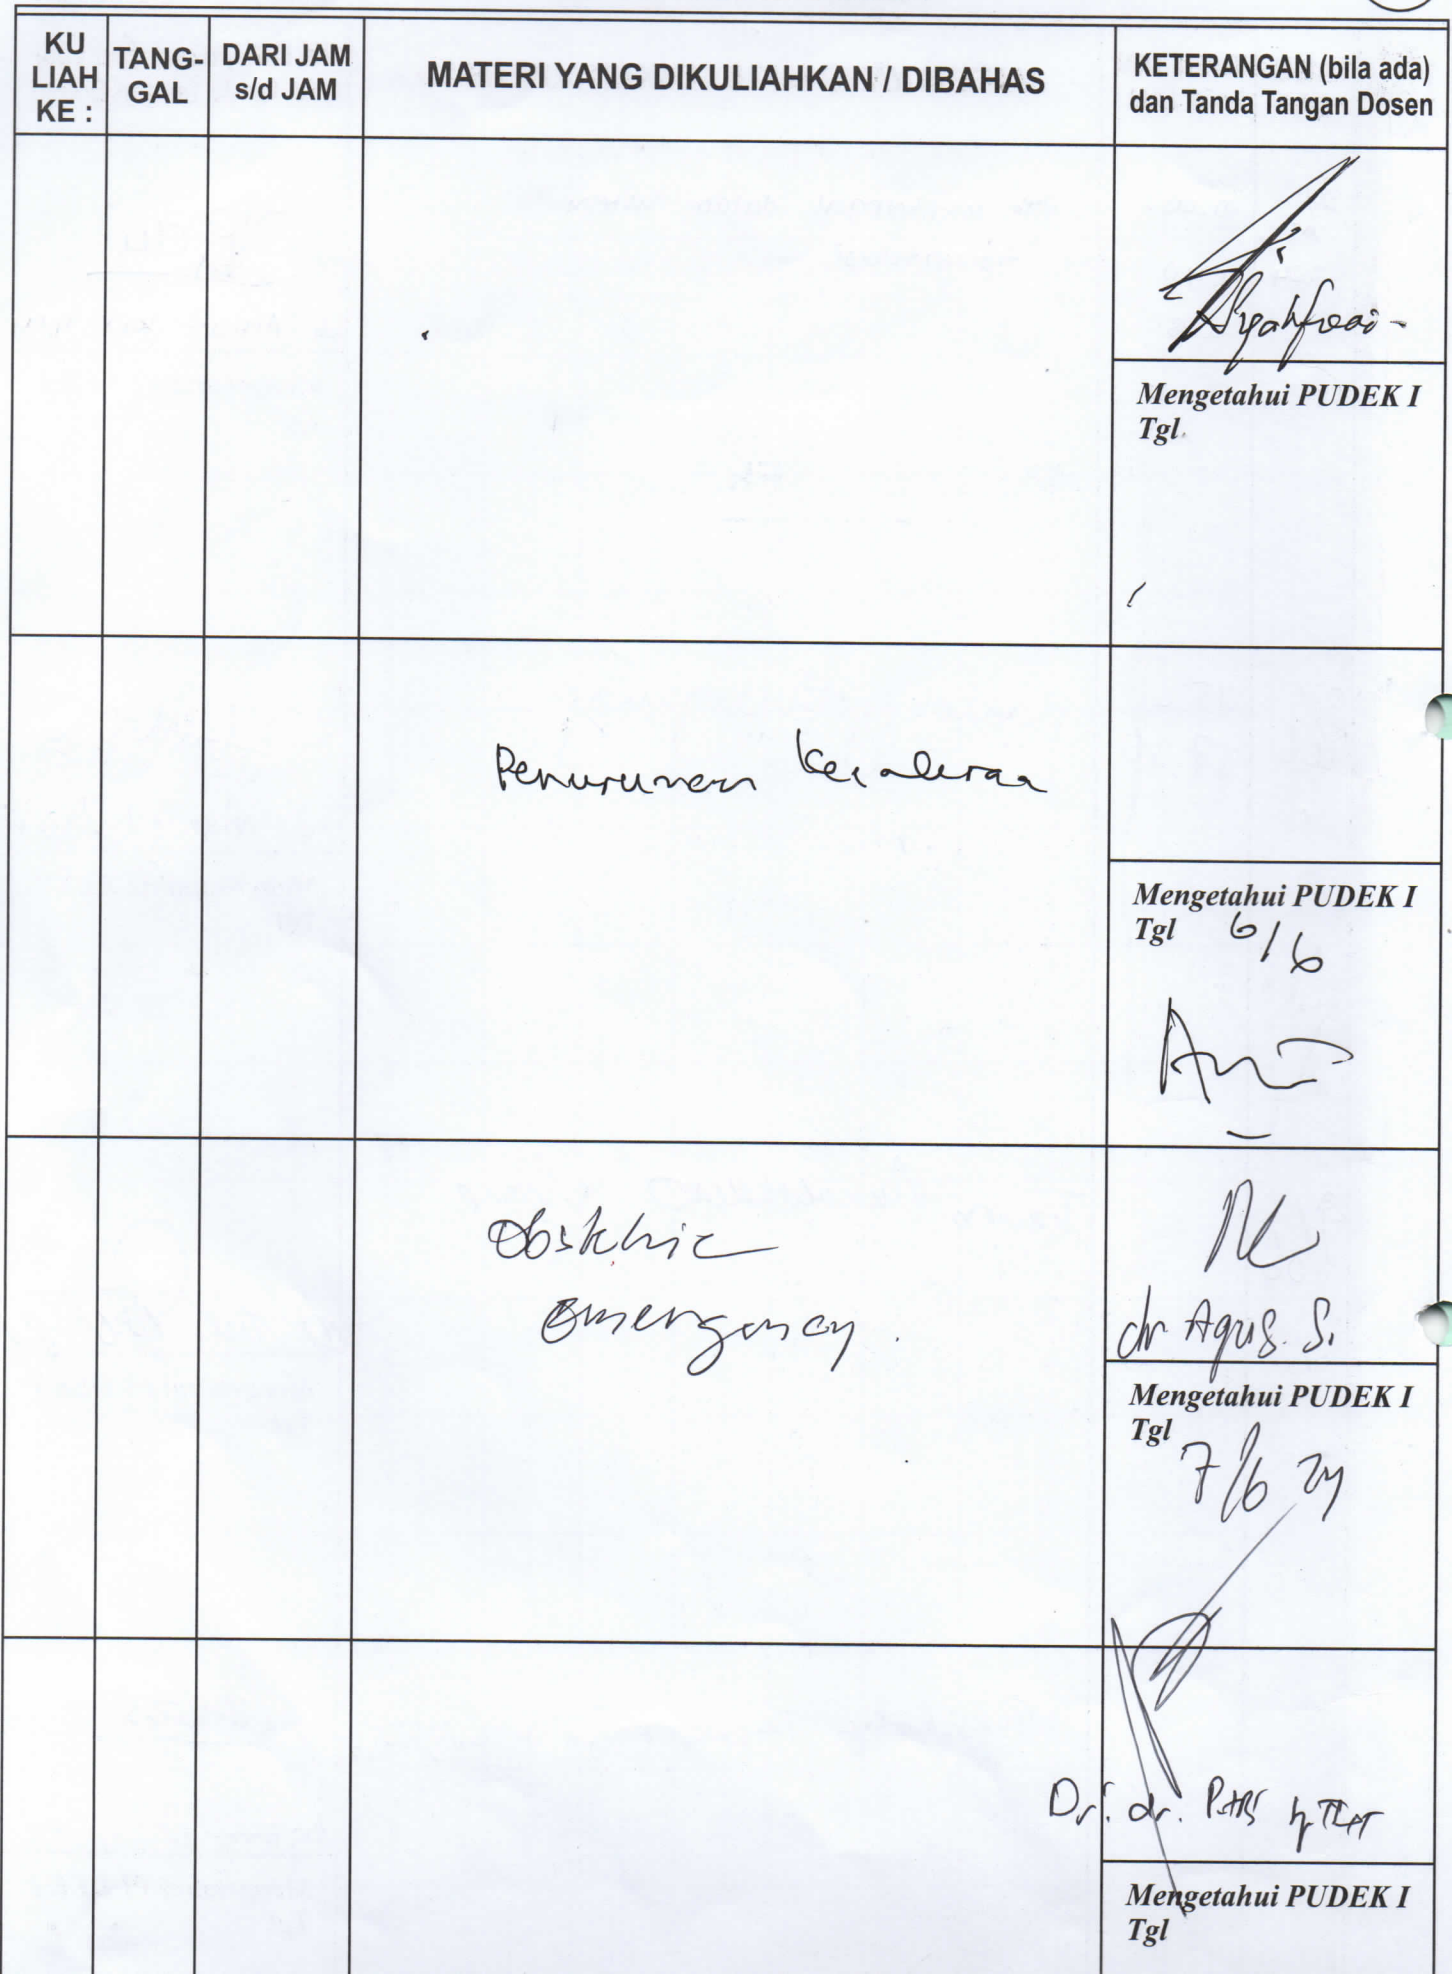 KU
LIAH
KE :
TANG-
GAL
DARI JAM
s/d JAM
MATERI YANG DIKULIAHKAN / DIBAHAS
KETERANGAN (bila ada)
dan Tanda Tangan Dosen
Mengetahui PUDEK I
Tgl.
Penurunan
Mengetahui PUDEK I
Tgl 6/6
Obstetric
Emergency.
dr Agus. S.
Mengetahui PUDEK I
Tgl 7/6 24
Dr. dr.
Mengetahui PUDEK I
Tgl